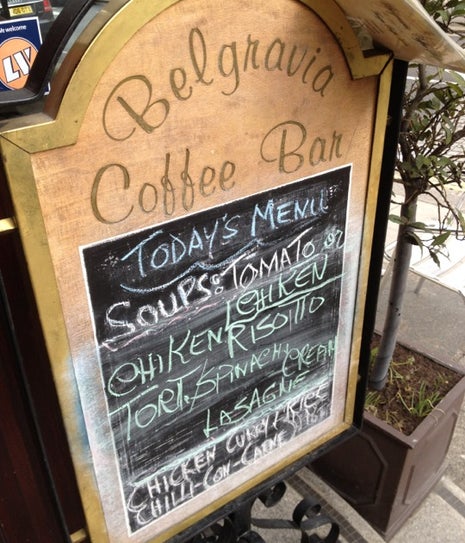 we welcome
LV
Belgravia
Coffee Bar
TODAY'S MENU
SOUPS: TOMATO or
CHIKEN
CHIKEN RISOTTO
TORT./SPINACH/CREAM
LASAGNE
CHICKEN CURRY + RICE
CHILLI-CON-CARNE